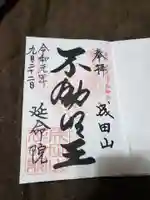 奉拝
成田山
不動明王
令和元年
九月二十二日
延命院